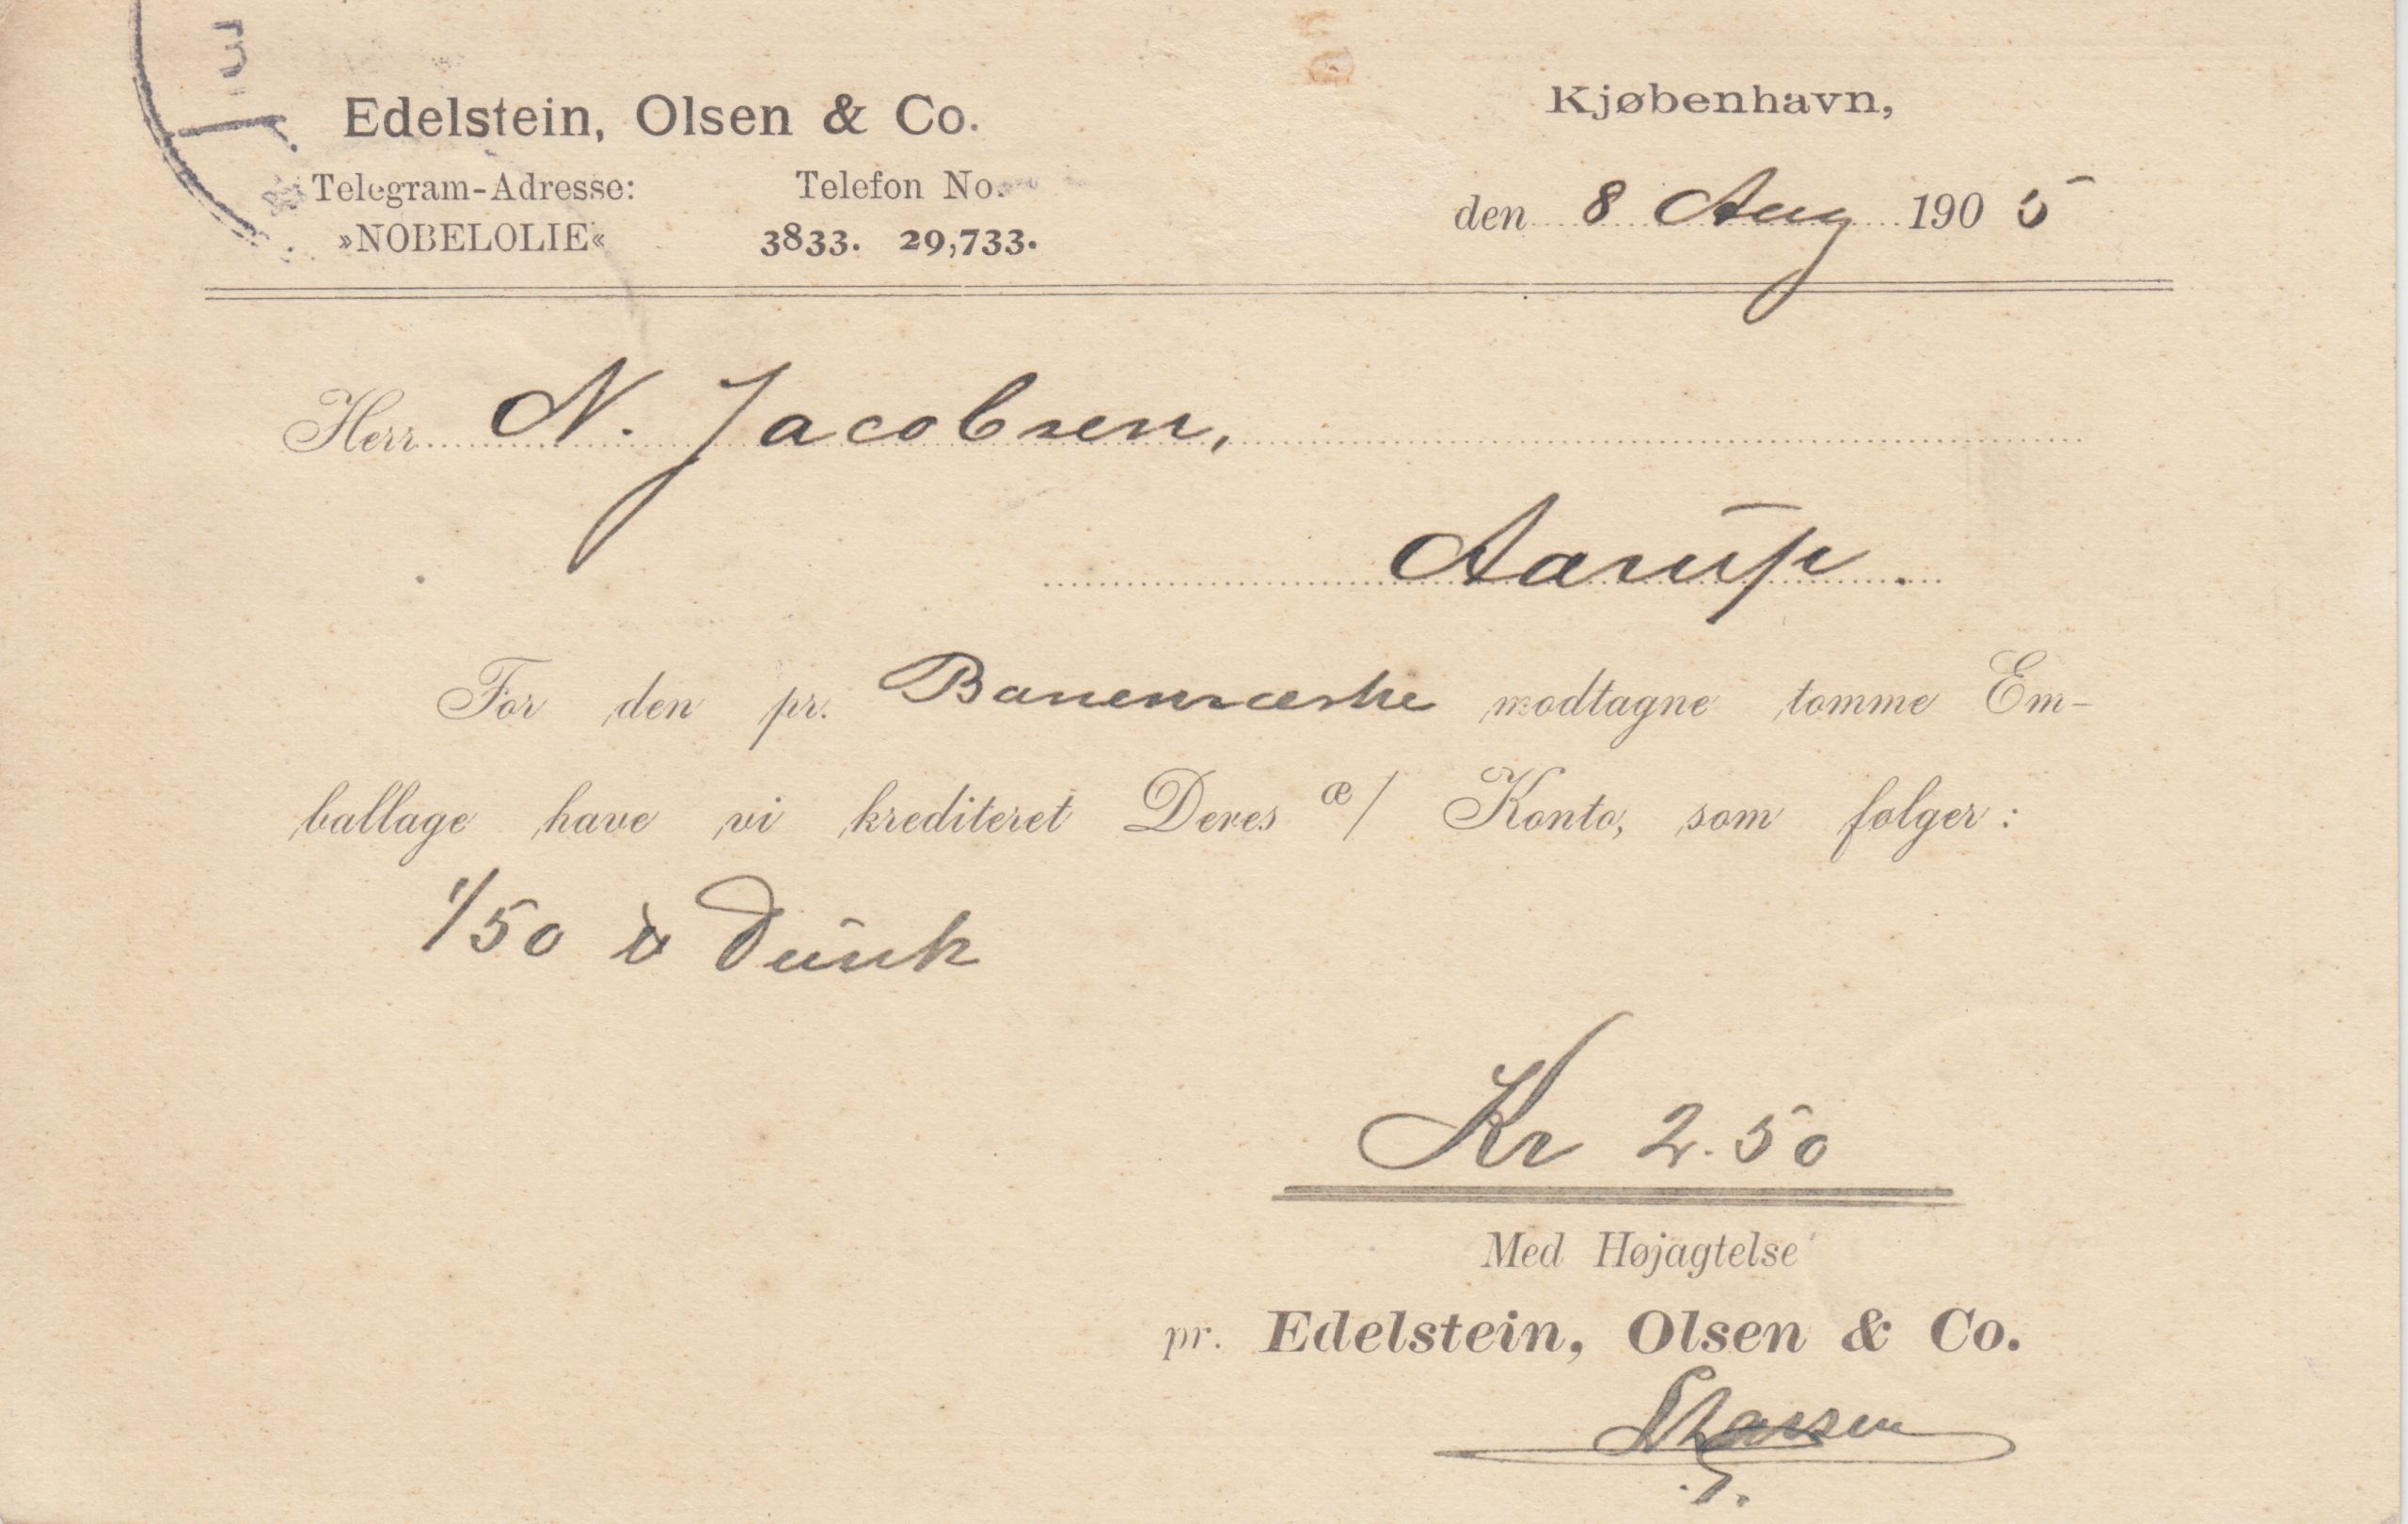 Edelstein, Olsen & Co.
Telegram-Adresse: Telefon No.
»NOBELOLIE« 3833. 29,733.
Kjøbenhavn,
den 8 Aug 1905
Herr N. Jacobsen,
Aarup.
For den pr. Baneneske modtagne tomme Em-
ballage have vi krediteret Deres æ/ Konto, som følger:
1/50 Dunk
Kr 2.50
Med Højagtelse
pr. Edelstein, Olsen & Co.